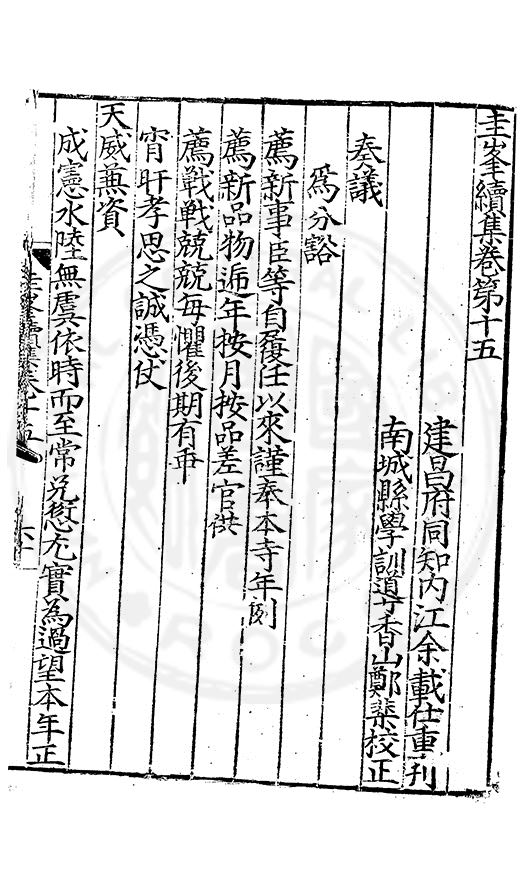 圭峯續集卷第十五
建昌府同知內江余載仕重刊
南城縣學訓導香山鄭棐校正
奏議
爲分豁
薦新事臣等自履任以來謹奉本寺年例
薦新品物遞年按月按品差官供
薦戰戰兢兢每懼後期有乖
宵旰孝思之誠憑仗
天威兼資
成憲水陸無虞依時而至常免愆尤實為過望本年正
圭峯續集卷十五